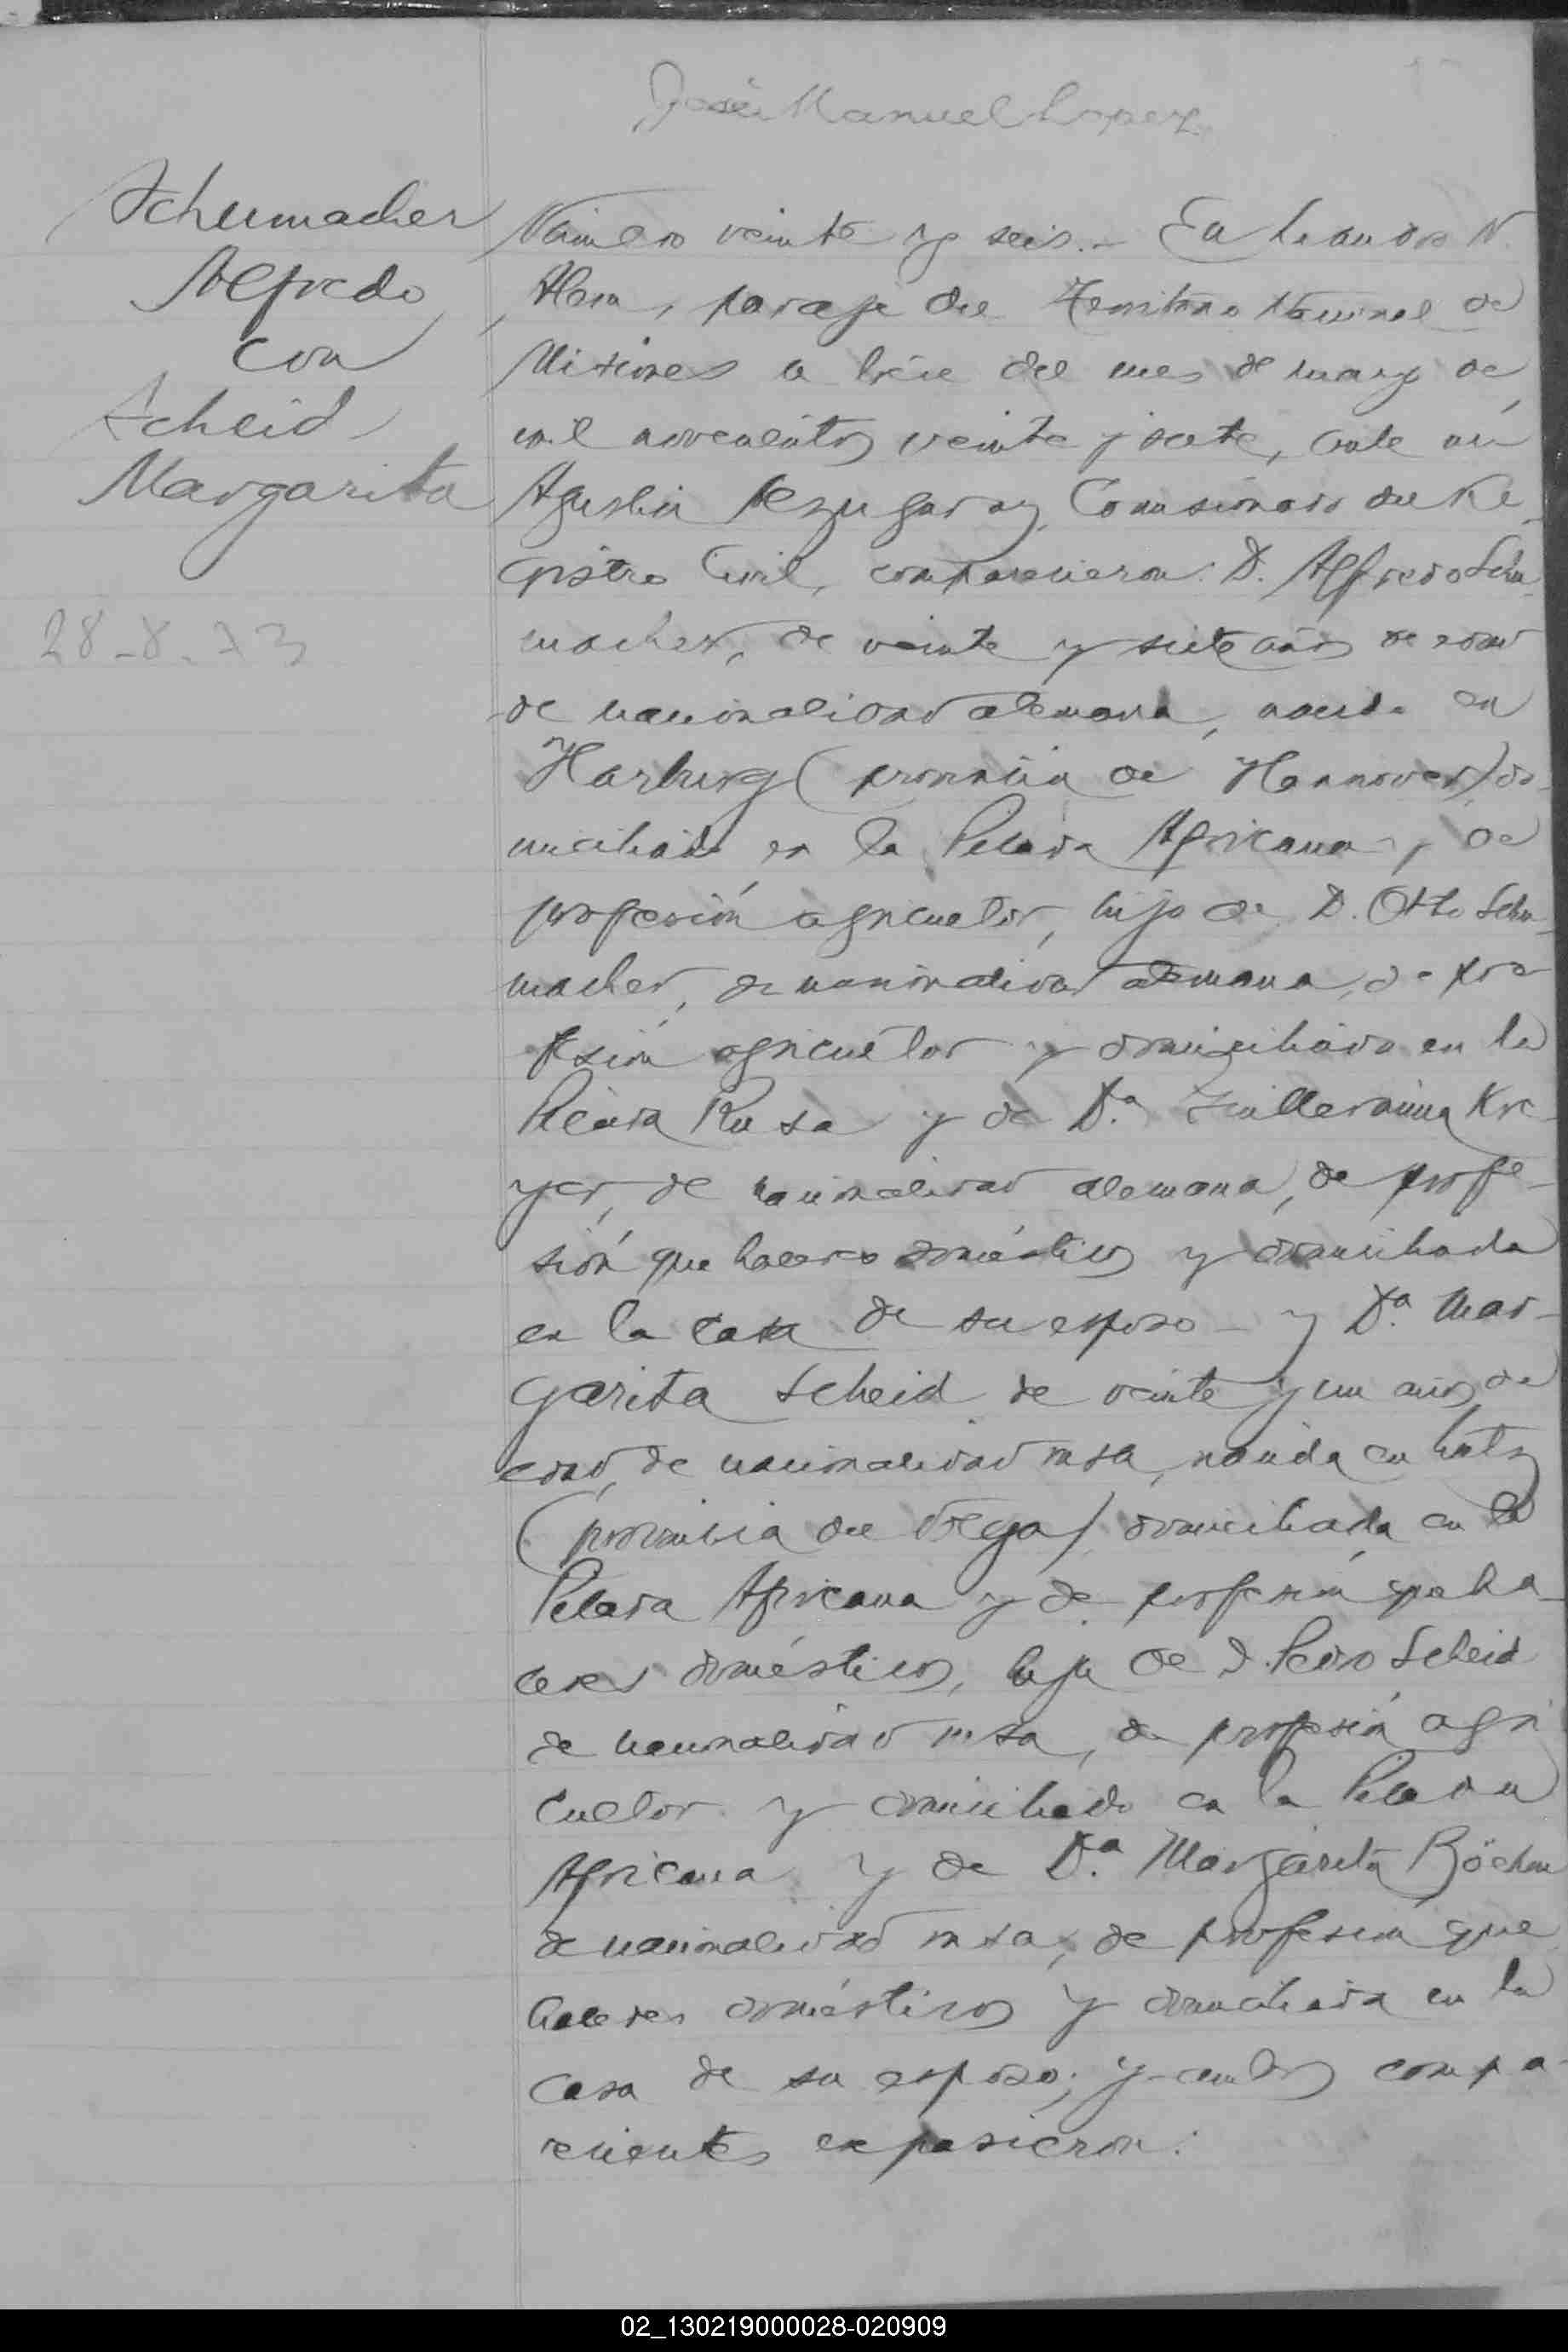 José Manuel Lopez
Schumacher
Alfredo
con
Scheid
Margarita
28-8-73
Número veinte y seis.- En Leandro N.
Alem, paraje del Territorio Nacional de
Misiones a trece del mes de mayo de
mil novecientos veinte y siete, ante mi
Agustin Comisionado del Re-
gistro Civil, comparecieron: D. Alfredo Schu-
macher, de veinte y siete años de edad
de nacionalidad alemana, nacido en
Harburg (provincia de Hannover) do-
miciliado en la Picada Africana y de
profesión agricultor, hijo de D. Otto Schu-
macher, de nacionalidad alemana, de pro-
fesión agricultor y domiciliado en la
Picada Rusa y de Dª Guillermina Kre-
yer, de nacionalidad alemana, de profe-
sión que haceres domésticos y domiciliada
en la casa de su esposo - y Dª Mar-
garita Scheid de veinte y un años de
edad, de nacionalidad rusa, nacida en
(provincia del Volga) domiciliada en la
Picada Africana y de profesión que ha-
ceres domésticos, hija de D. Pedro Scheid
de nacionalidad rusa, de profesión agri
cultor y domiciliado en la Picada
Africana y de Dª Margarita Böehm
de nacionalidad rusa, de profesión que
haceres domésticos y domiciliada en la
casa de su esposo; y ambos compa-
recientes expusieron:
02_130219000028-020909